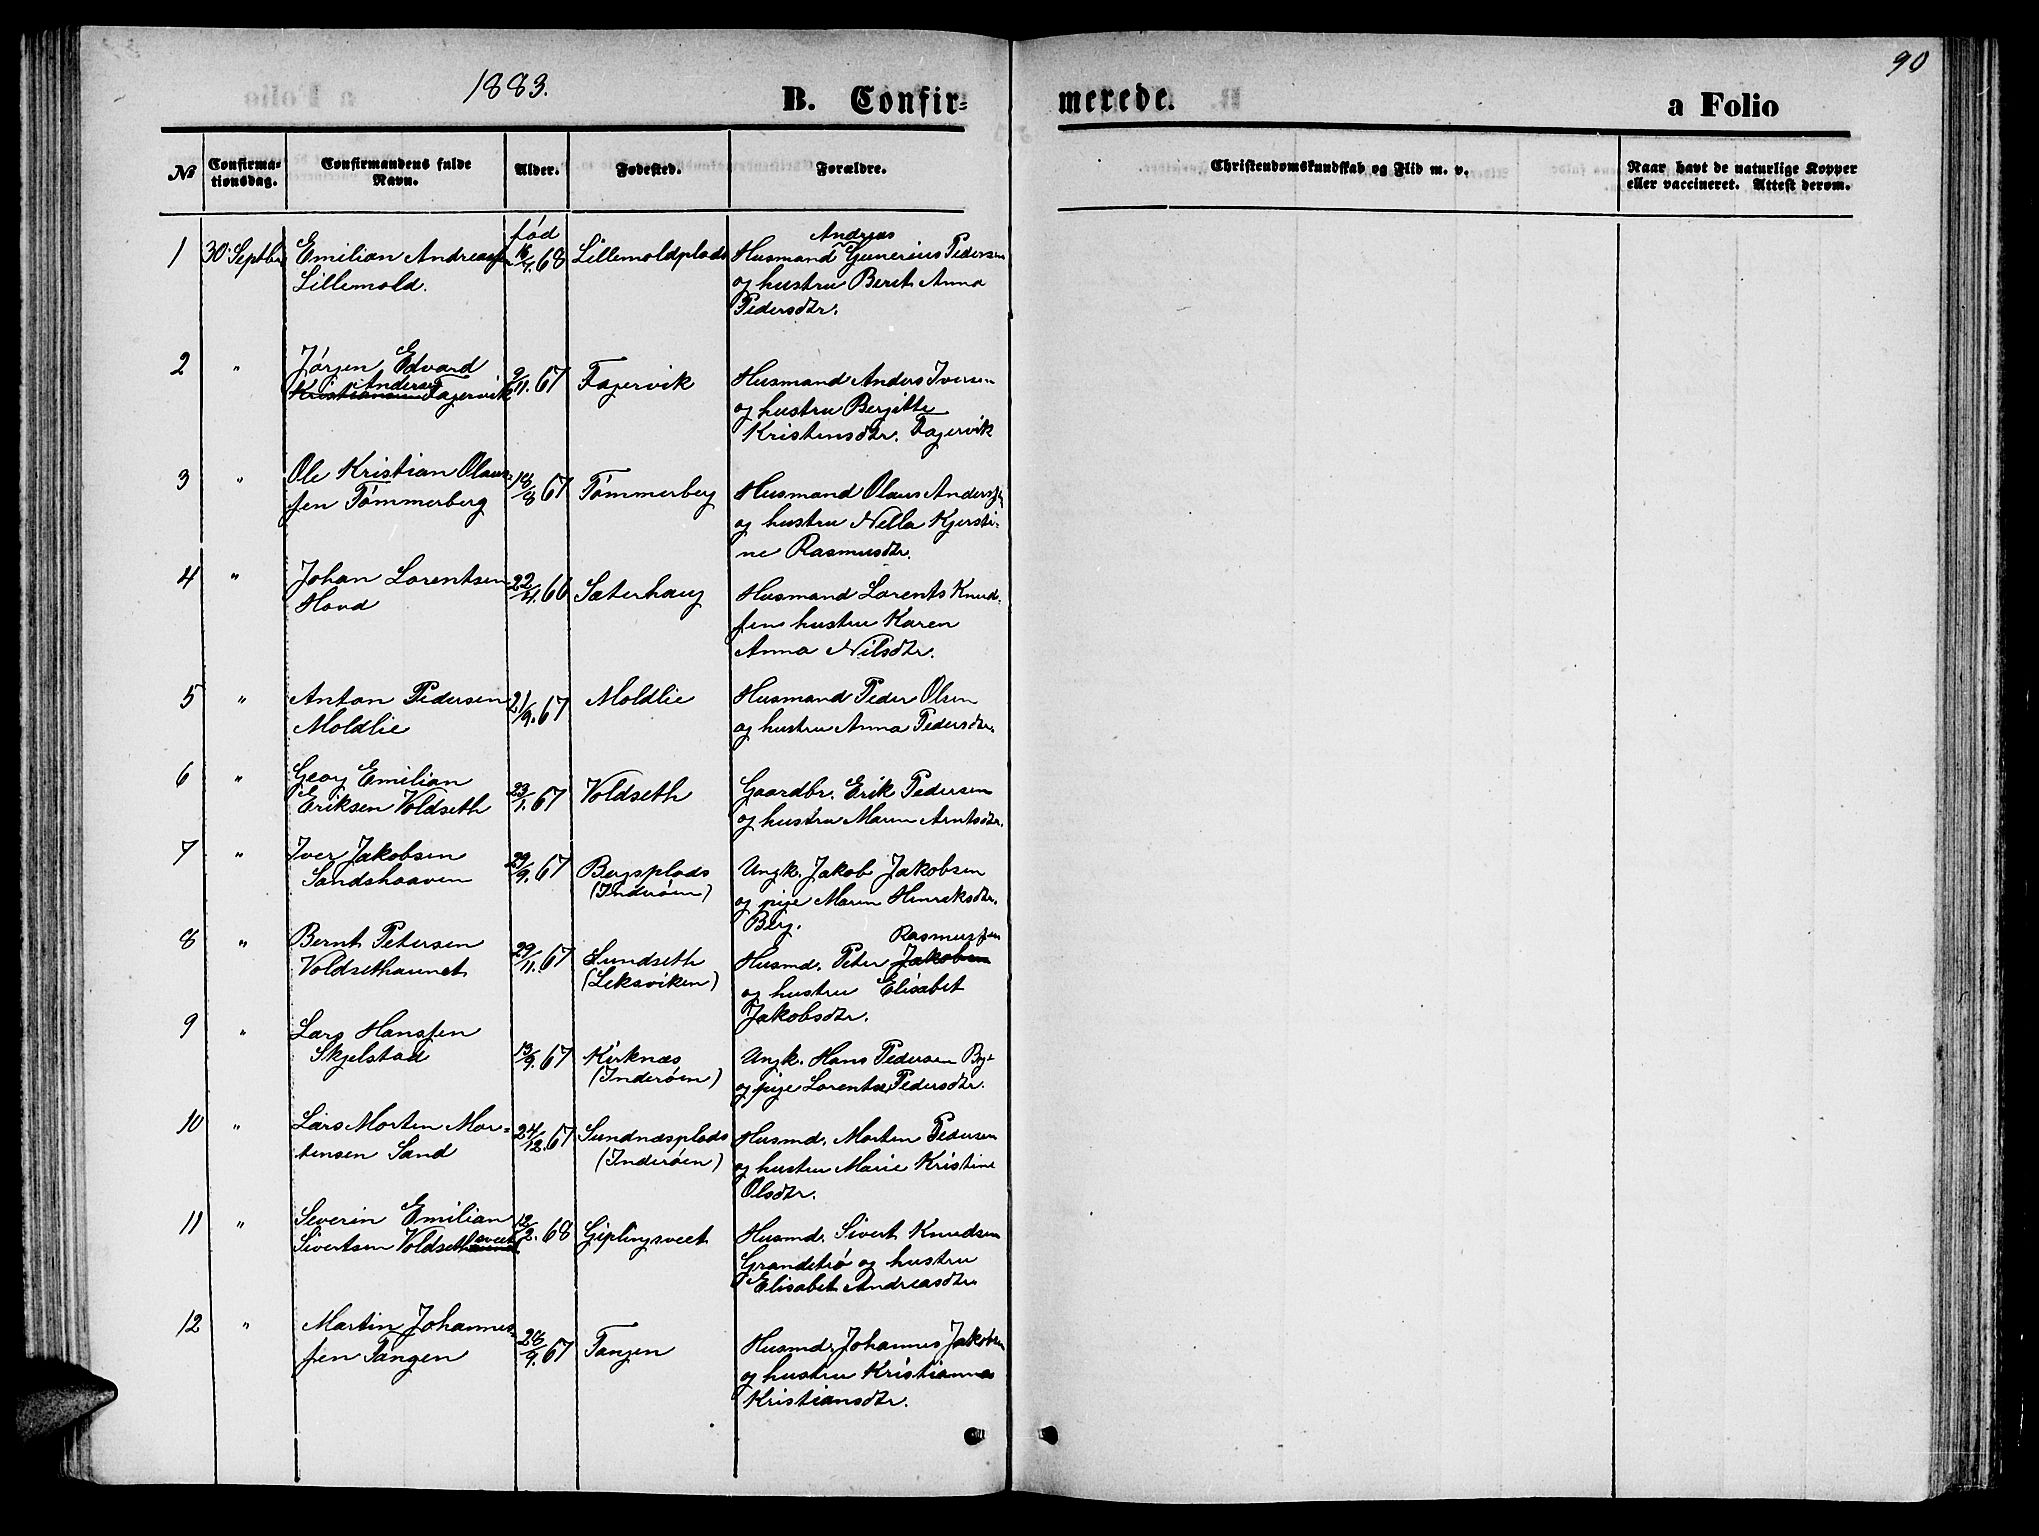 1883.
90
B. Confir-
merede.
a Folio
No
Confirma-
tionsdag.
Confirmandens fulde
Navn.
Alder.
Fødested.
Forældre.
Christendomskundskab og Flid m. v.
Naar havt de naturlige Kopper
eller vaccineret. Attest derom.
1 30 Septbr Emilian Andreassen
Lillemold.
fød
16/4. 68
Lillemoldplads
Andreas
Husmand Gunerius Pedersen
og hustru Berit Anna
Pedersdtr.
2 " Jørgen Edvard
Anderses
Kristiansen Fagervik
9/11. 67 Fagervik
Husmand Anders Iversen
og hustru Bergitte
Kristensdtr. Fagervik
3 " Ole Kristian Olaus-
sen Tømmerberg
18/8 67 Tømmerberg
Husmand Olaus Anderssen
og hustru Nella Kjersti-
ne Rasmusdtr.
4 " Johan Lorentsen
Hovd
22/4. 66 Sæterhaug
Husmand Lorents Knud-
sen hustru Karen
Anna Nilsdtr.
5 " Anton Pedersen
Moldlie
21/9. 67 Moldlie
Husmand Peder Olsen
og hustru Anna Pedersdtr.
6 " Georg Emilian
Eriksen Voldseth
23/1. 67 Voldseth
Gaardbr. Erik Pedersen
og hustru Maren Arntsdtr.
7 " Iver Jakobsen
Sandshaaven
29/9. 67 Bergsplads
(Inderøen)
Ungk. Jakob Jakobsen
og pige Maren Henriksdtr.
Berg.
8 " Bernt Petersen
Voldsethaunet
29/11. 67 Sundseth
(Leksviken)
Rasmussen
Husmd. Peter Jakobsen
og hustru Elisabet
Jakobsdtr.
9 " Lars Hanssen
Skjelstad
13/9. 67 Kirknæs
(Inderøen)
Ungk. Hans Pedersen By-
og pige Lorentse Pedersdtr.
10 " Lars Morten Mor-
tensen Sand
24/12. 67 Sundnæsplads
(Inderøen)
Husmd. Morten Pedersen
og hustru Marie Kristine
Olsdtr.
11 " Severin Emilian
Sivertsen Voldsethaunet
sveet
12/2. 68 Giplingsveet
Husmd. Sivert Knudsen
Grandetrø og hustru
Elisabet Andreasdtr
12 " Martin Johannes-
sen Tangen
28/9. 67 Tangen
Husmd. Johannes Jakobsen
og hustru Kristianna
Kristiansdtr.